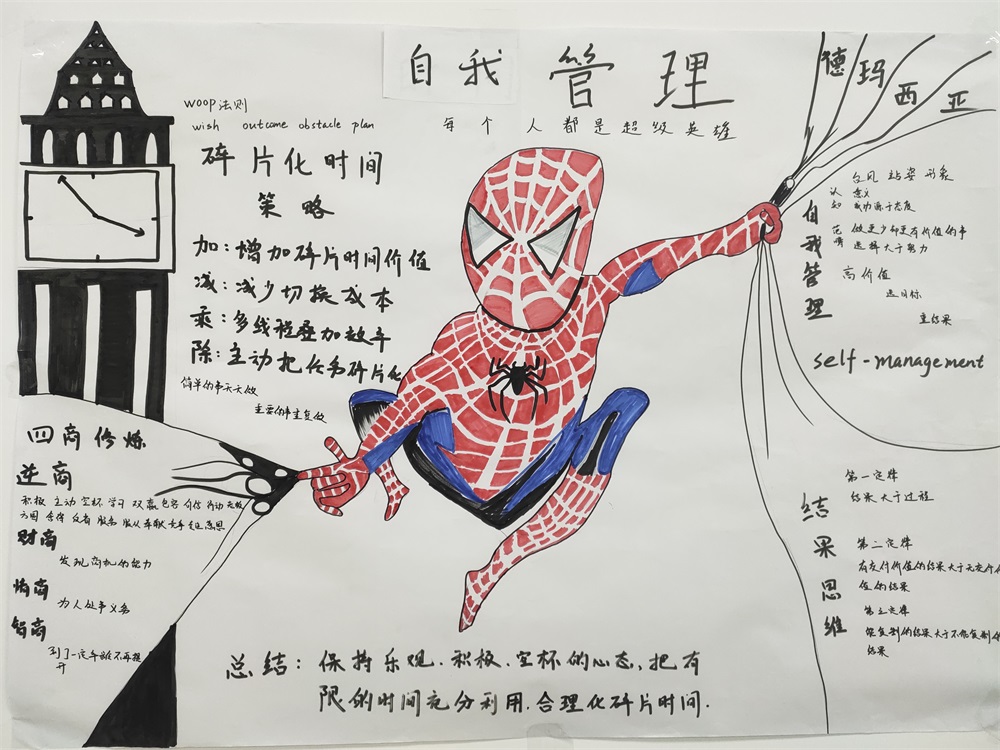 自我管理
每个人都是超级英雄
德玛西亚
WOOP法则
wish outcome obstacle plan
碎片化时间
策略
加：增加碎片时间价值
减：减少切换成本
乘：多线程叠加效率
除：主动把任务碎片化
简单的事天天做
重要的事重复做
四商修炼
逆商
积极 主动 空杯 学习 双赢 包容 自信 行动
方圆 舍得 反省 服务 服从 奉献 感恩
财商
发现商机的能力
情商
为人处事
智商
到了一定年龄不再提
升
自我管理
认知
台风 站姿 形象
意义
成功源于态度
做更少却更有价值的事
选择大于努力
高价值
选目标
重结果
self-management
结果思维
第一定律
结果大于过程
第二定律
有交付价值的结果大于无交付价
值的结果
第三定律
能复制的结果大于不能复制的
结果
总结：保持乐观、积极、空杯的心态，把有
限的时间充分利用，合理化碎片时间.